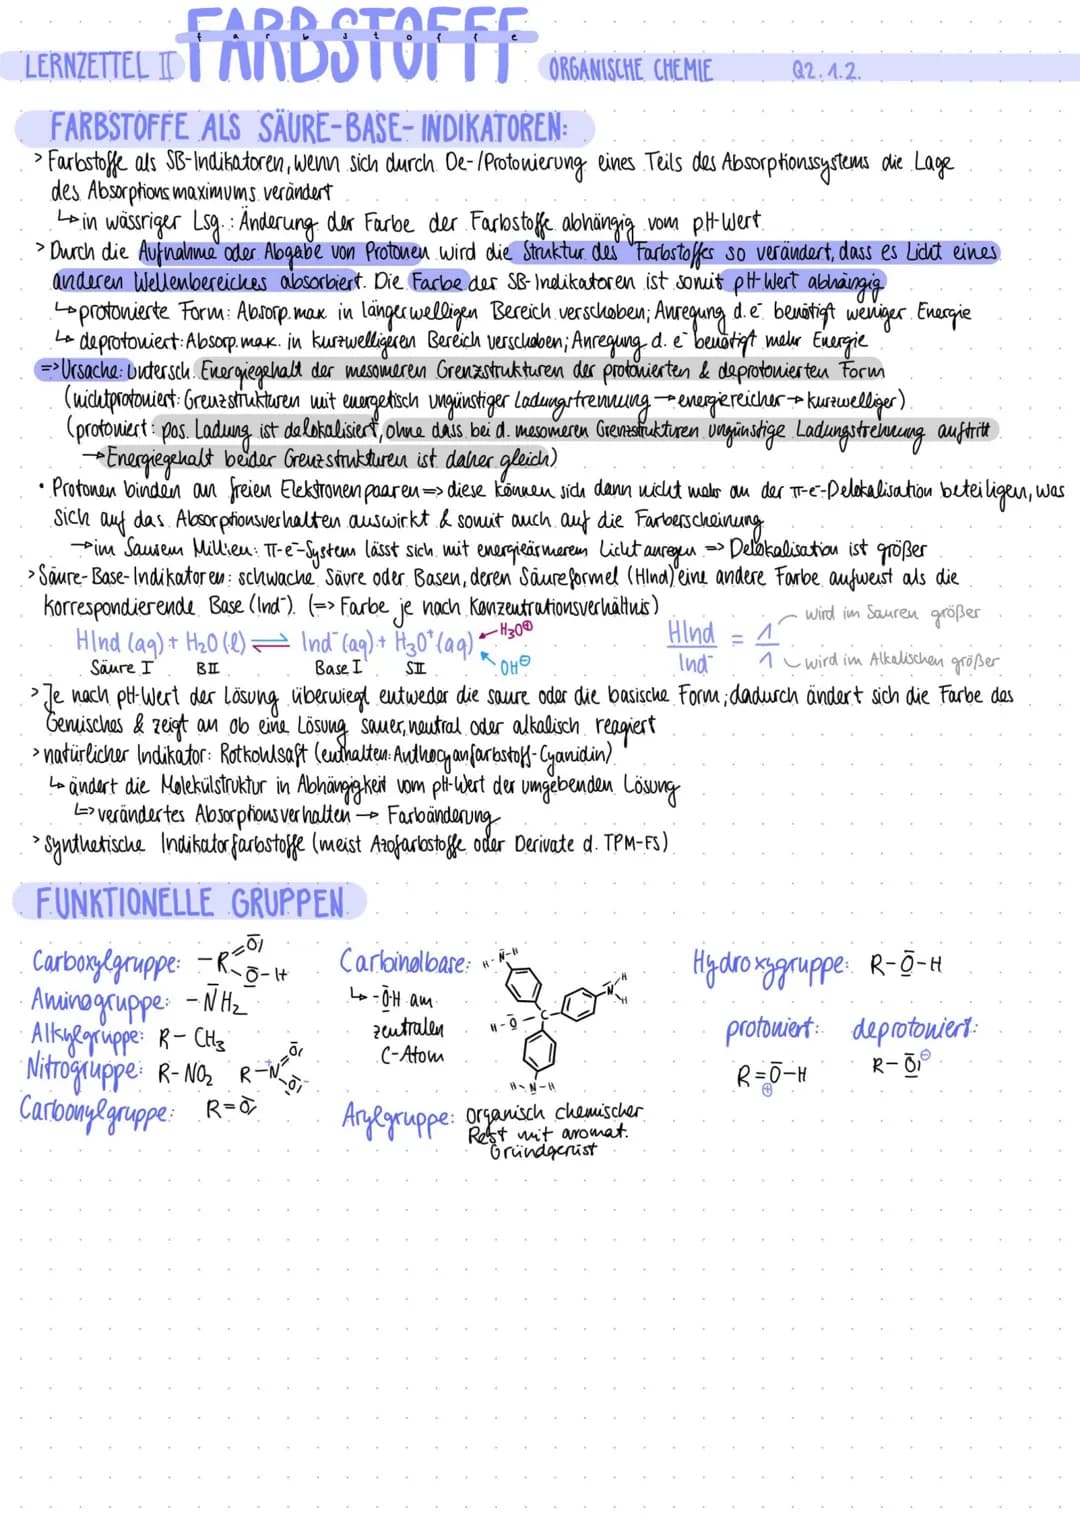 LERNZETTEL II FARBSTOFFE ORGANISCHE CHEMIE Q2.1.2.
farbstoffe
FARBSTOFFE ALS SÄURE-BASE-INDIKATOREN:
> Farbstoffe als SB-Indikatoren, wenn sich durch De-/Protonierung eines Teils des Absorptionssystems die Lage
des Absorptionsmaximums verändert
↳ in wässriger Lsg.: Änderung der Farbe der Farbstoffe abhängig vom pH-Wert
> Durch die Aufnahme oder Abgabe von Protonen wird die Struktur des Farbstoffes so verändert, dass es Licht eines
anderen Wellenbereiches absorbiert. Die Farbe der SB-Indikatoren ist somit pH-Wert abhängig
↳ protonierte Form: Absorp.max in längerwelligen Bereich verschoben; Anregung d. e⁻ benötigt weniger Energie
↳ deprotoniert: Absorp.max. in kurzwelligeren Bereich verschoben; Anregung d. e⁻ benötigt mehr Energie
=> Ursache: Untersch. Energiegehalt der mesomeren Grenzstrukturen der protonierten & deprotonierten Form
(nichtprotoniert: Grenzstrukturen mit energetisch ungünstiger Ladungstrennung → energiereicher → kurzwelliger)
(protoniert: pos. Ladung ist delokalisiert, ohne dass bei d. mesomeren Grenzstrukturen ungünstige Ladungstrennung auftritt
→ Energiegehalt beider Grenzstrukturen ist daher gleich)
• Protonen binden an freien Elektronenpaaren => diese können sich dann nicht mehr an der π-e⁻-Delokalisation beteiligen, was
sich auf das Absorptionsverhalten auswirkt & somit auch auf die Farberscheinung
→ im Sauren Millieu: π-e⁻-System lässt sich mit energieärmerem Licht anregen => Delokalisation ist größer
> Säure-Base-Indikatoren: schwache Säure oder Basen, deren Säureformel (HInd) eine andere Farbe aufweist als die
korrespondierende Base (Ind⁻). (=> Farbe je nach Konzentrationsverhältnis)
HInd (aq) + H₂O (l) ⇌ Ind⁻ (aq) + H₃O⁺ (aq) ← H₃O⊕ ← OH⊖
Säure I BII Base I SII
HInd / Ind⁻ = 1 / 1
wird im Sauren größer
wird im Alkalischen größer
> Je nach pH-Wert der Lösung überwiegt entweder die saure oder die basische Form; dadurch ändert sich die Farbe des
Gemisches & zeigt an ob eine Lösung sauer, neutral oder alkalisch reagiert
> natürlicher Indikator: Rotkohlsaft (enthalten: Anthocyanfarbstoff-Cyanidin)
↳ ändert die Molekülstruktur in Abhängigkeit vom pH-Wert der umgebenden Lösung
↳> verändertes Absorptionsverhalten → Farbänderung
> Synthetische Indikatorfarbstoffe (meist Azofarbstoffe oder Derivate d. TPM-FS)
FUNKTIONELLE GRUPPEN
Carboxylgruppe: -R=O -O-H
Aminogruppe: -NH₂
Alkylgruppe: R-CH₃
Nitrogruppe: R-NO₂ R-N⁺=O -O⁻
Carbonylgruppe: R=O
Carbinolbase: H-N-H
↳ -OH am
zentralen
C-Atom
H-O-C
N H H
H-N-H
Arylgruppe: organisch chemischer
Rest mit aromat.
Grundgerüst
Hydroxygruppe: R-O-H
protoniert: deprotoniert:
R=O-H R-O⊖
⊕